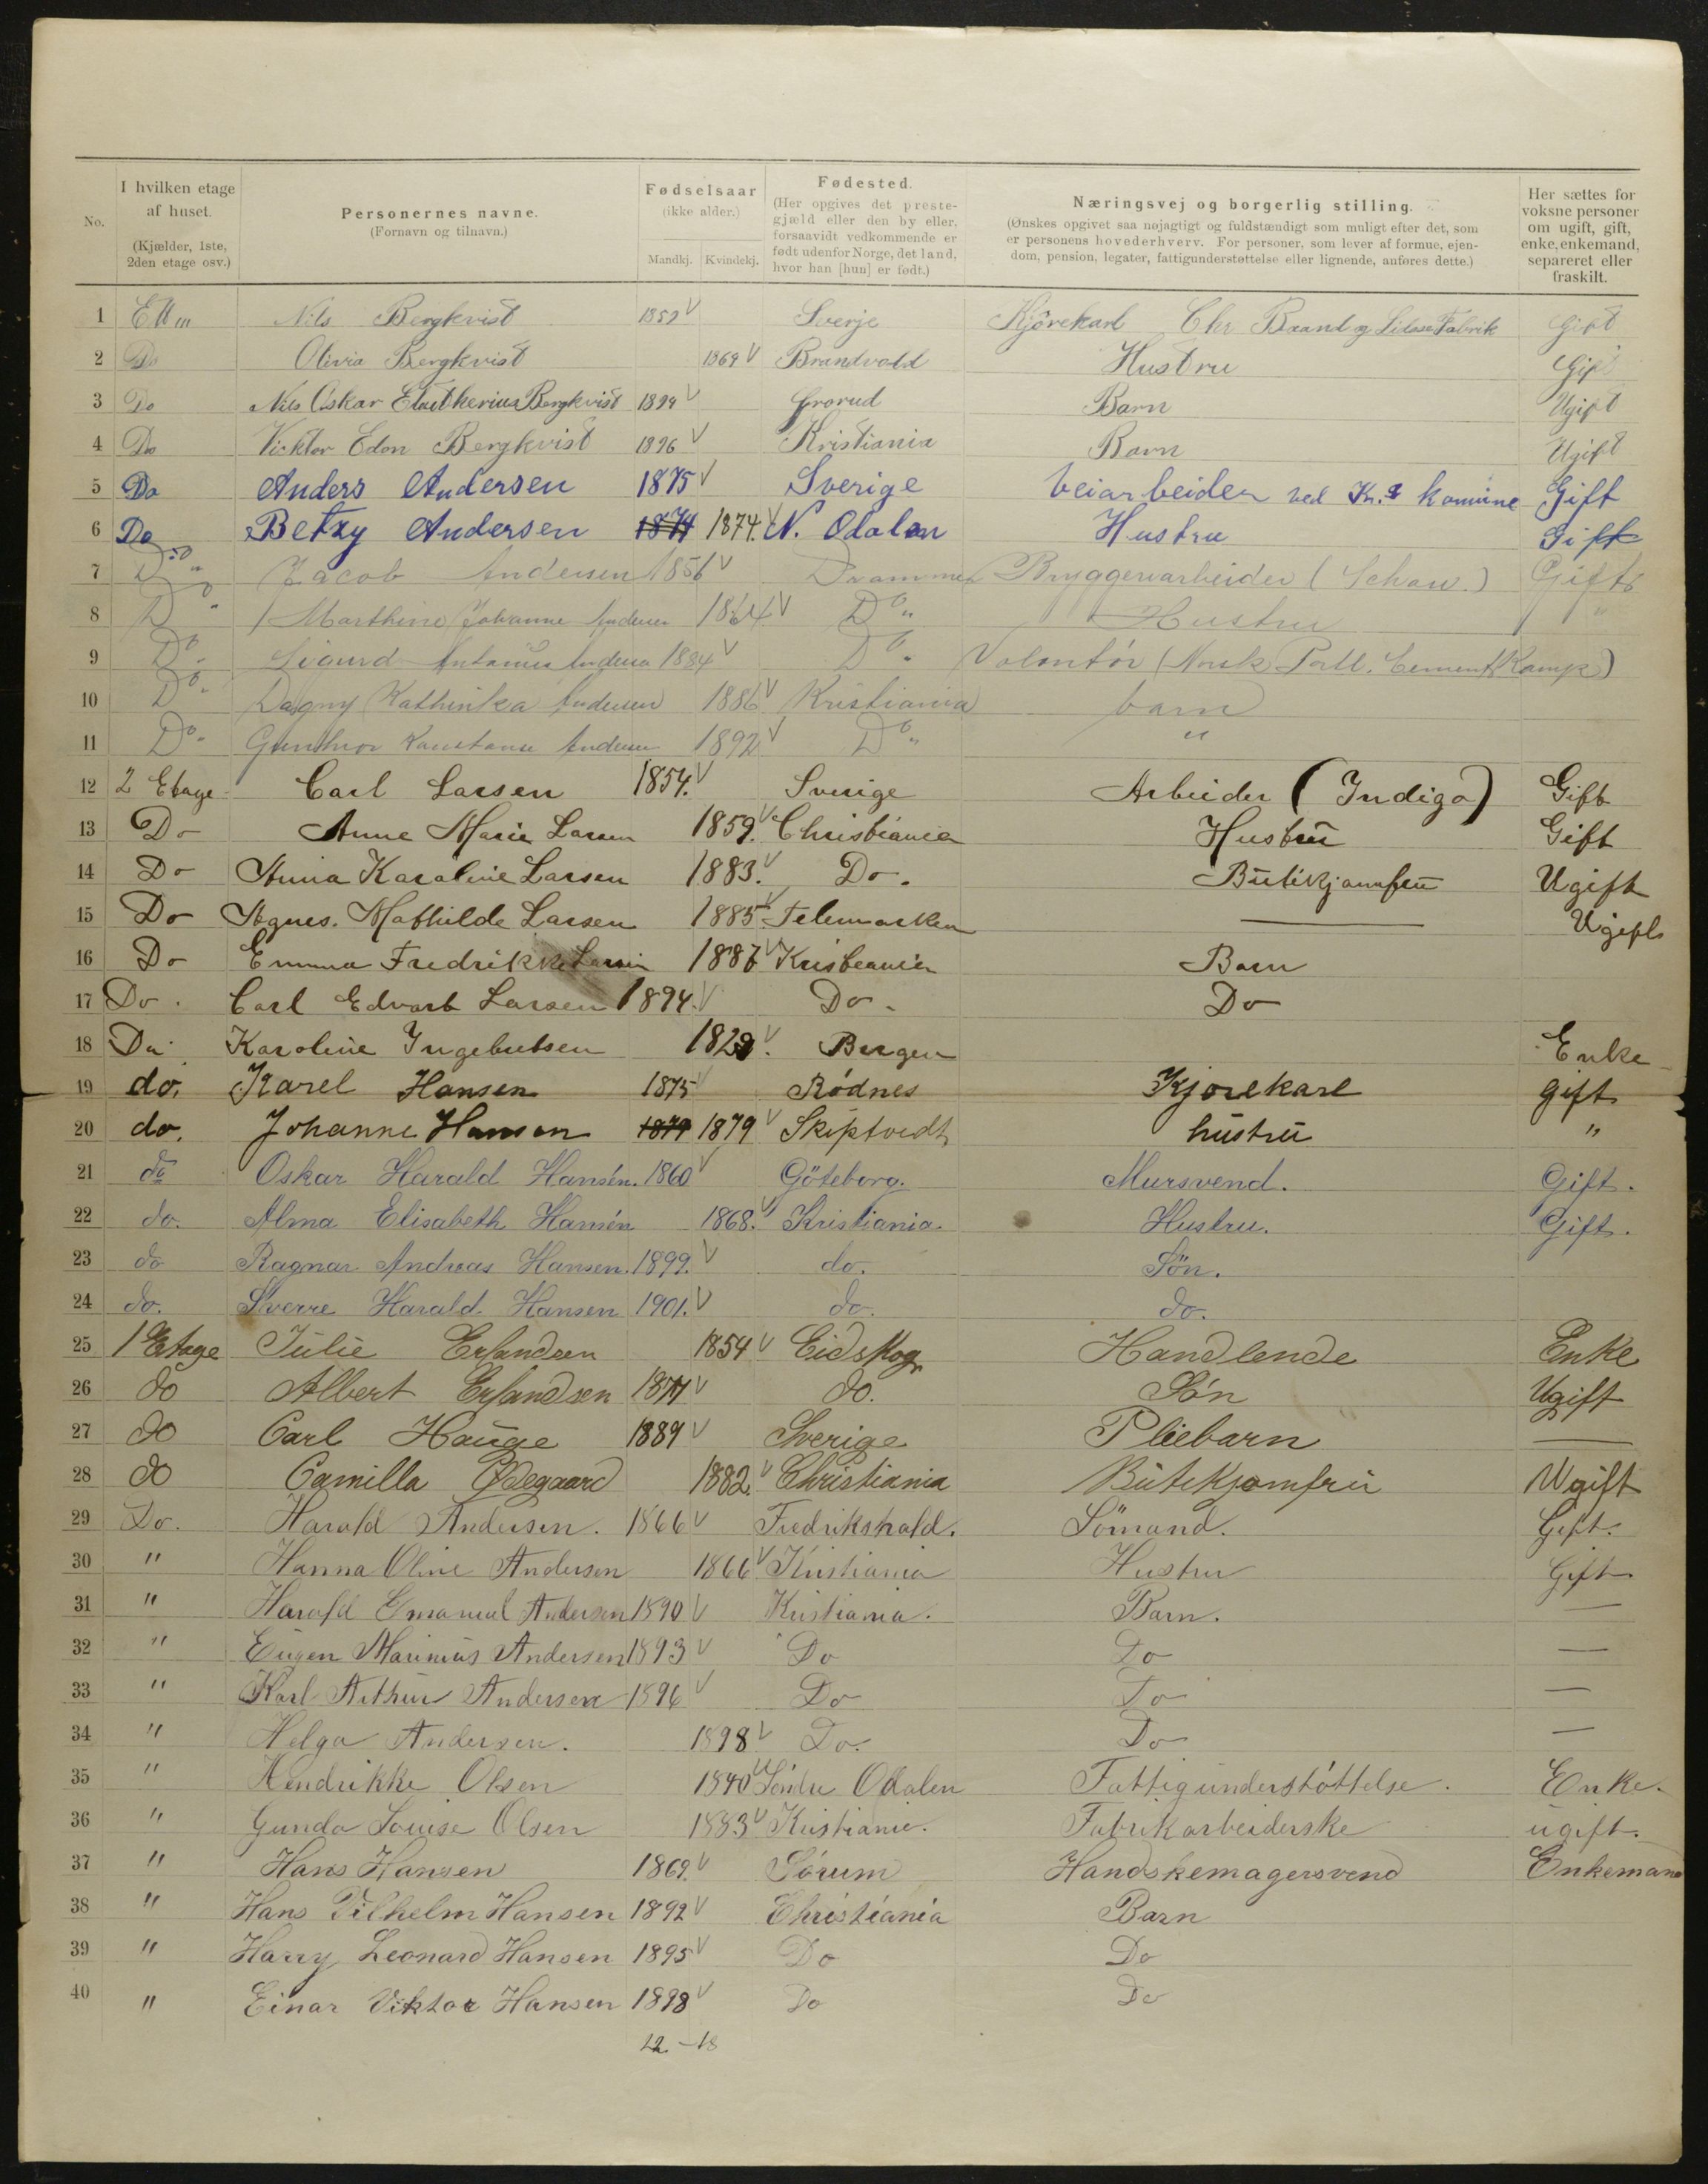 No.
I hvilken etage af huset. (Kjælder, 1ste, 2den etage osv.)
Personernes navne. (Fornavn og tilnavn.)
Fødselsaar (ikke alder.) Mandkj. Kvindekj.
Fødested. (Her opgives det prestegjæld eller den by eller, forsaavidt vedkommende er født udenfor Norge, det land, hvor han [hun] er født.)
Næringsvej og borgerlig stilling. (Ønskes opgivet saa nøjagtigt og fuldstændigt som muligt efter det, som er personens hovederhverv. For personer, som lever af formue, ejendom, pension, legater, fattigunderstøttelse eller lignende, anføres dette.)
Her sættes for voksne personer om ugift, gift, enke, enkemand, separeret eller fraskilt.
1 Nils Bergkvist Sverje Kjörekarl Chr Brand Fabrik Gift
2 Do Olivia Bergkvist 1869 Brandvold Hustru Gift
3 Do Nils Oskar Bergkvist 1894 Grorud Barn Ugift
4 Do Vicktor Edon Bergkvist 1896 Kristiania Barn Ugift
5 Do Anders Andersen 1875 Sverige veiarbeider ved Kr.a komune Gift
6 Do Betzy Andersen 1874 1874. N. Odalen Hustru Gift
7 Do " Jacob Andersen 1856 Drammen Bryggeriarbeider (Schou.) Gift
8 Do " Marthine Johanne Andersen 1864 Do " Hustru "
9 Do " Sigurd Antonius Andersen 1884 Do " Volontör (Norsk Portl. Cement Komp)
10 Do " Dagny Kathinka Andersen 1886 Kristiania barn
11 Do " Gunthor Konstanse Andersen 1892 Do " "
12 2 Etage Carl Larsen 1854. Sverige Arbeider (Indigo) Gift
13 Do Anne Marie Larsen 1859. Christiania Hustru Gift
14 Do Anna Karoline Larsen 1883. Do. Butikjomfru Ugift
15 Do Agnes. Mathilde Larsen 1885 Telemarken — Ugift
16 Do Emma Fredrikke Larsen Kristiania Barn
17 Do. Carl Edvart Larsen 1894. Do. Do
18 Do Karoline Ingebretsen Bergen Enke
19 do. Karel Hansen 1875 Rødnes Kjorekarl gift
20 do. Johanne Hansen 1879 1879 Skiptvedt hustru "
21 do Oskar Harald Hansén. 1860 Göteborg. Mursvend. Gift.
22 do. Alma Elisabeth Hansén 1868. Kristiania. Hustru. Gift.
23 do Ragnar Andreas Hansen. 1899. do. Sön.
24 do. Sverre Harald Hansen 1901. do. do.
25 1 Etage Julie Erlandsen 1854 Eidskog Handlende Enke
26 do Albert Erlandsen do. Søn Ugift
27 do Carl Hauge 1889 Sverige Pleiebarn —
28 do Camilla Ødegaard 1882. Christiania Butikjomfru Ugift
29 Do. Harald Andersen. 1866 Fredrikshald. Sömand. Gift.
30 " Hanna Oline Andersen 1866 Kristiania Hustru Gift
31 " Harald Emanuel Andersen 1890 Kristiania. Barn. —
32 " Eugen Marinius Andersen 1893 Do Do —
33 " Karl Arthur Andersen 1896 Do Do —
34 " Helga Andersen. 1898 Do. Do —
35 " Hendrikke Olsen 1840 Söndre Odalen Fattigunderstöttelse. Enke.
36 " Gunda Louise Olsen 1883 Kristiania. Fabrikarbeiderske ugift.
37 " Hans Hansen 1869. Sørum Handskemagersvend Enkemand
38 " Hans Vilhelm Hansen 1892 Christiania Barn
39 " Harry Leonard Hansen 1895 Do Do
40 " Einar Viktor Hansen 1898 Do Do
22 – 18